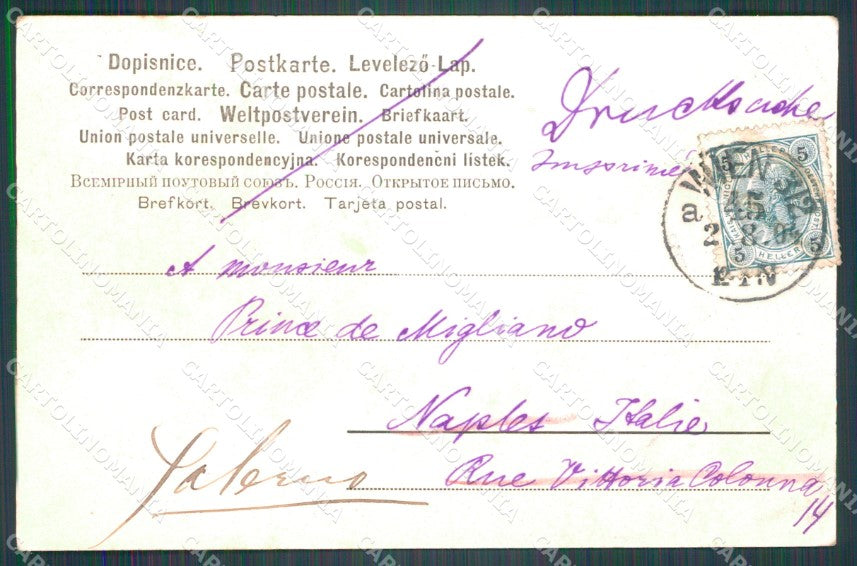 Dopisnice. Postkarte. Levelező-Lap.
Correspondenzkarte. Carte postale. Cartolina postale.
Post card. Weltpostverein. Briefkaart.
Union postale universelle. Unione postale universale.
Karta korespondencyjna. Korespondenčni listek.
Всемірный почтовый союзъ. Россія. Открытое письмо.
Brefkort. Brevkort. Tarjeta postal.
Drucksache
Imprimé
WIEN 3/2
45
a
HELLER
5
A monsieur
Prince de Migliano
Naples Italie
Rue Vittoria Colonna
14
Salerno
CARTOLINOMANIA